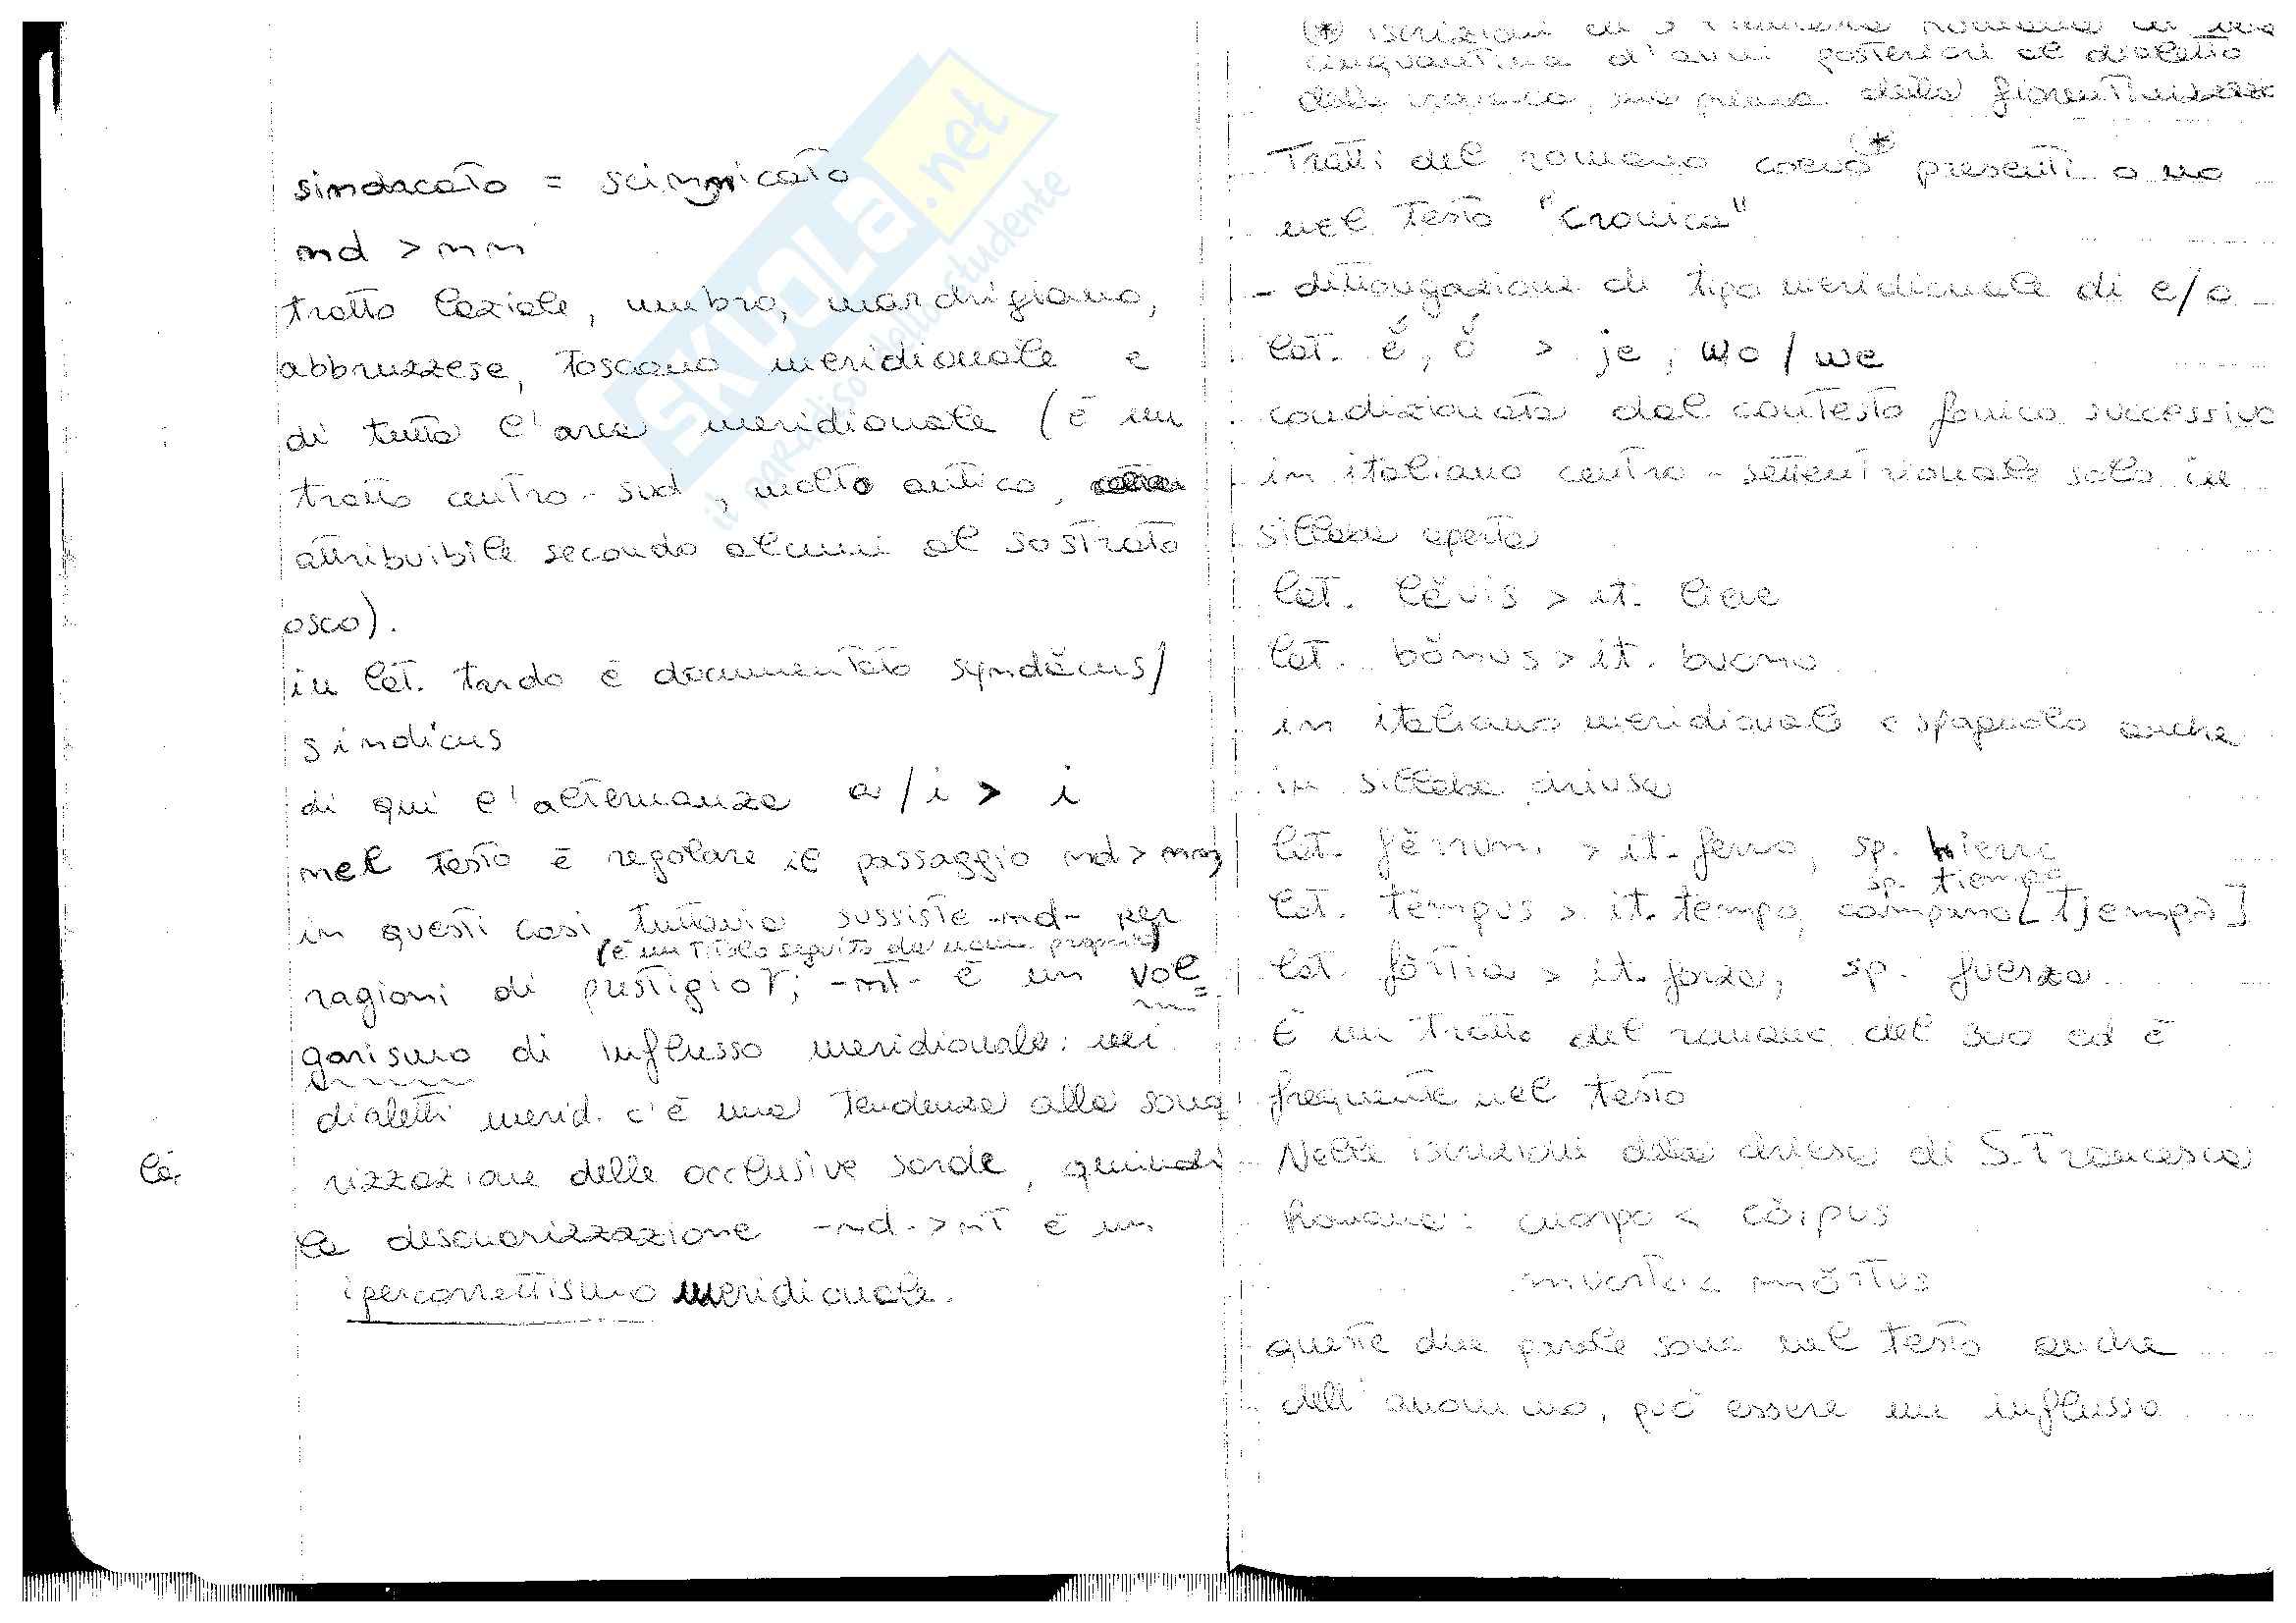 sindacato = scinnicato
nd > nn
tratto laziale, umbro, marchigiano,
abbruzzese, toscano meridionale e
di tutta l'area meridionale (è un
tratto centro-sud, molto antico,
attribuibile secondo alcuni al sostrato
osco).
in lat. tardo è documentato syndĭcus/
sindicus
di qui l'alternanza a/i > i
nel testo è regolare il passaggio nd > nn,
in questi casi tuttavia sussiste -nd- per
(è un titolo seguito da nome proprio)
ragioni di prestigio; -nt- è un vol=
garismo di influsso meridionale: nei
dialetti merid. c'è una tendenza alla sono
rizzazione delle occlusive sorde, quindi
la desonorizzazione -nd- > nt è un
ipercorrettismo meridionale.
la
(*) iscrizioni di romana
cinquantina d'anni posteriori al dialetto
della cronica, ma prima della
Tratti del romano coevo* presenti o no
nel testo "Cronica"
- dittongazione di tipo meridionale di e/o
lat. ĕ, ŏ > je, wo/we
condizionata dal contesto fonico successivo
in italiano centro-settentrionale solo in
sillaba aperta
lat. lĕvis > it. lieve
lat. bŏnus > it. buono
in italiano meridionale e spagnolo anche
in sillaba chiusa
lat. fĕrrum > it. ferro, sp. hierro
sp. tiempo
lat. tĕmpus > it. tempo, campano [tjempə]
lat. fŏrtia > it. forza, sp. fuerza
È un tratto del romano del 300 ed è
frequente nel testo
Nelle iscrizioni della chiesa di S. Francesca
Romana: cuorpo < cŏrpus
muorto < mŏrtus
queste due parole sono nel testo anche
dell'anonimo, può essere un influsso
SKUOLA.net
il paradiso dello studente